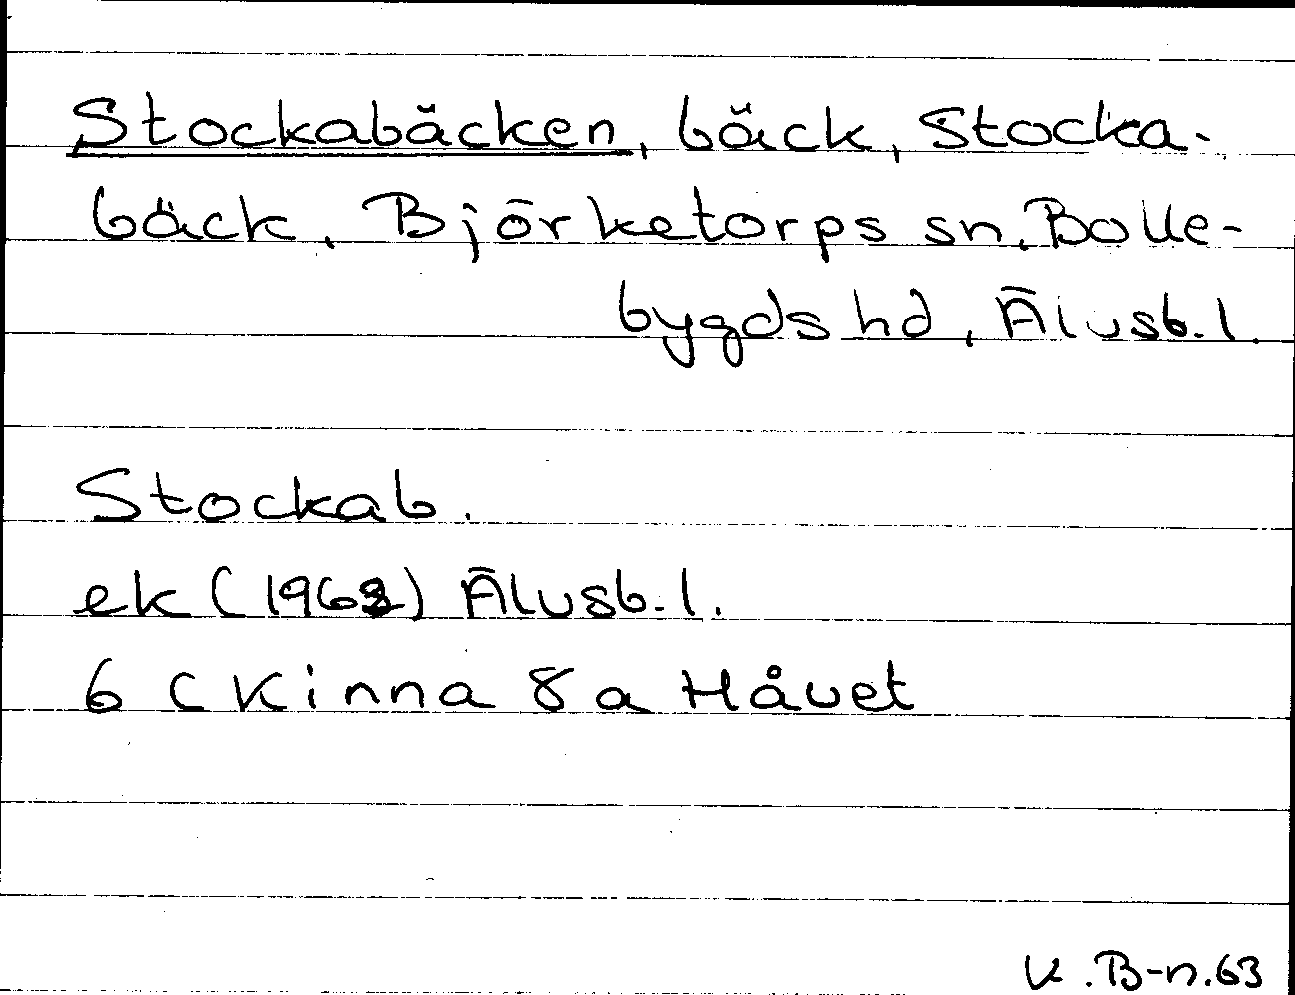 Stockabäcken, bäck, Stocka-
bäck. Björketorps sn. Bolle-
bygds hd, Älvsb. l.
Stockab.
ek (1963) Älvsb. l.
6 C Kinna 8 a Håvet
K. B-n. 63